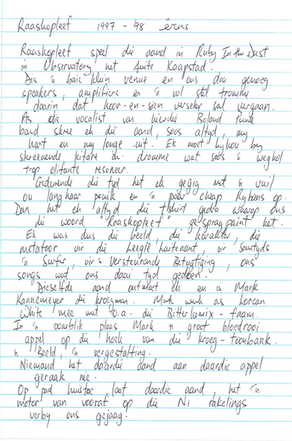 Raaskopleef 1997 - 98 êrens
Raaskopleef speel die aand in Ruby In the Dust
in Observatory, net buite Kaapstad.
As 'n baie klein venue en ons dra genoeg
speakers, amplifiers en 'n vol stel tromme
daarin dat hoor-en-sien verseker sal vergaan.
As die vocalist van hierdie Boland Punk
band skree ek die aand, soos altyd, my
hart en my longe uit. Ek moet byhou by
skreeuende kitare en dromme wat soos 'n weghol
trop olifante resoneer.
Gedurende die tyd het ek gegig met 'n vuil
ou langhaar pruik en 'n paar cheap Raybans op.
Dan het ek altyd die tshirt gedra waarop ons
die woord Raaskopleef gespraypaint het.
Ek was dus die beeld, die karakter, die
metafoor vir die Leegte Luitenant, vir Soutgds
'n Surfer, vir 'n Versteurende Betustiging, ons
songs wat ons daai tyd gedoen.
Dieselfde aand ontmoet ek en is Mark
Kannemeyer die kroegman. Mark werk as Lorcan
White mee met o.a. die Bitterkomix-faam.
In 'n oomblik plaas Mark 'n groot bloedrooi
appel op die hoek van die kroeg-toonbank.
'n Beeld, 'n vergestalting.
Niemand het daardie aand aan daardie appel
geraak nie.
Op pad huistoe laat daardie aand, het 'n
motor van vooraf op die N1 rakelings
verby ons gejaag.